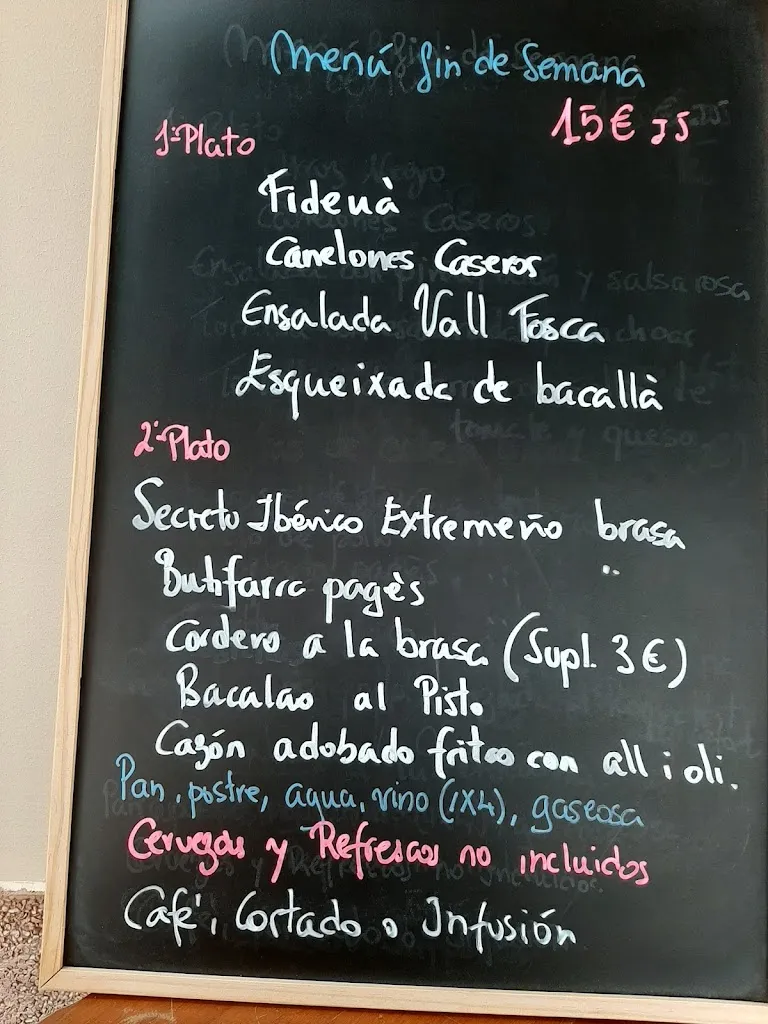 Menú fin de Semana
15€
1º Plato
Fideuà
Canelones Caseros
Ensalada Vall Fosca
Esqueixada de bacallà
2º Plato
Secreto Ibérico Extremeño brasa
Butifarra pagès "
Cordero a la brasa (Supl. 3€)
Bacalao al Pisto
Cazón adobado fritoo con all i oli.
Pan, postre, agua, vino (1x4), gaseosa
Cervezas y Refrescos no incluidos
Café, Cortado o Infusión